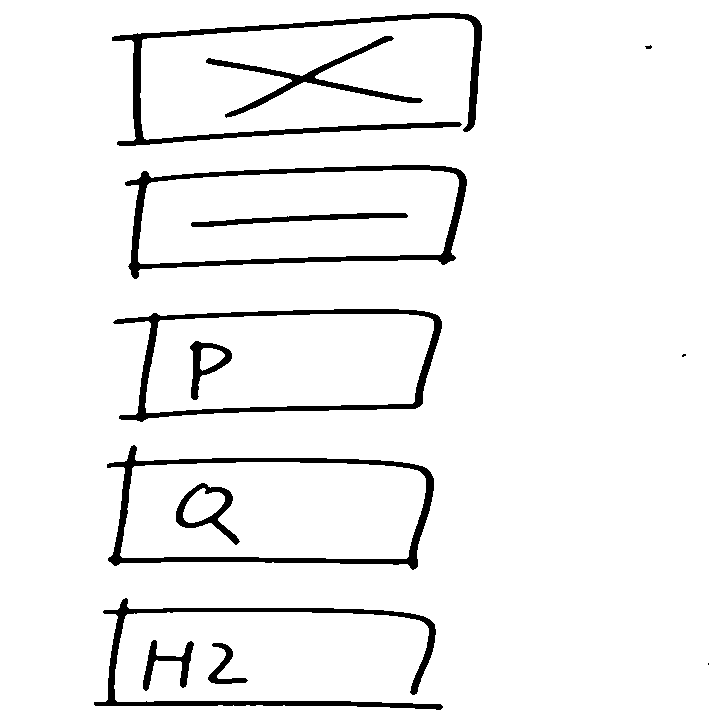 P
Q
H2